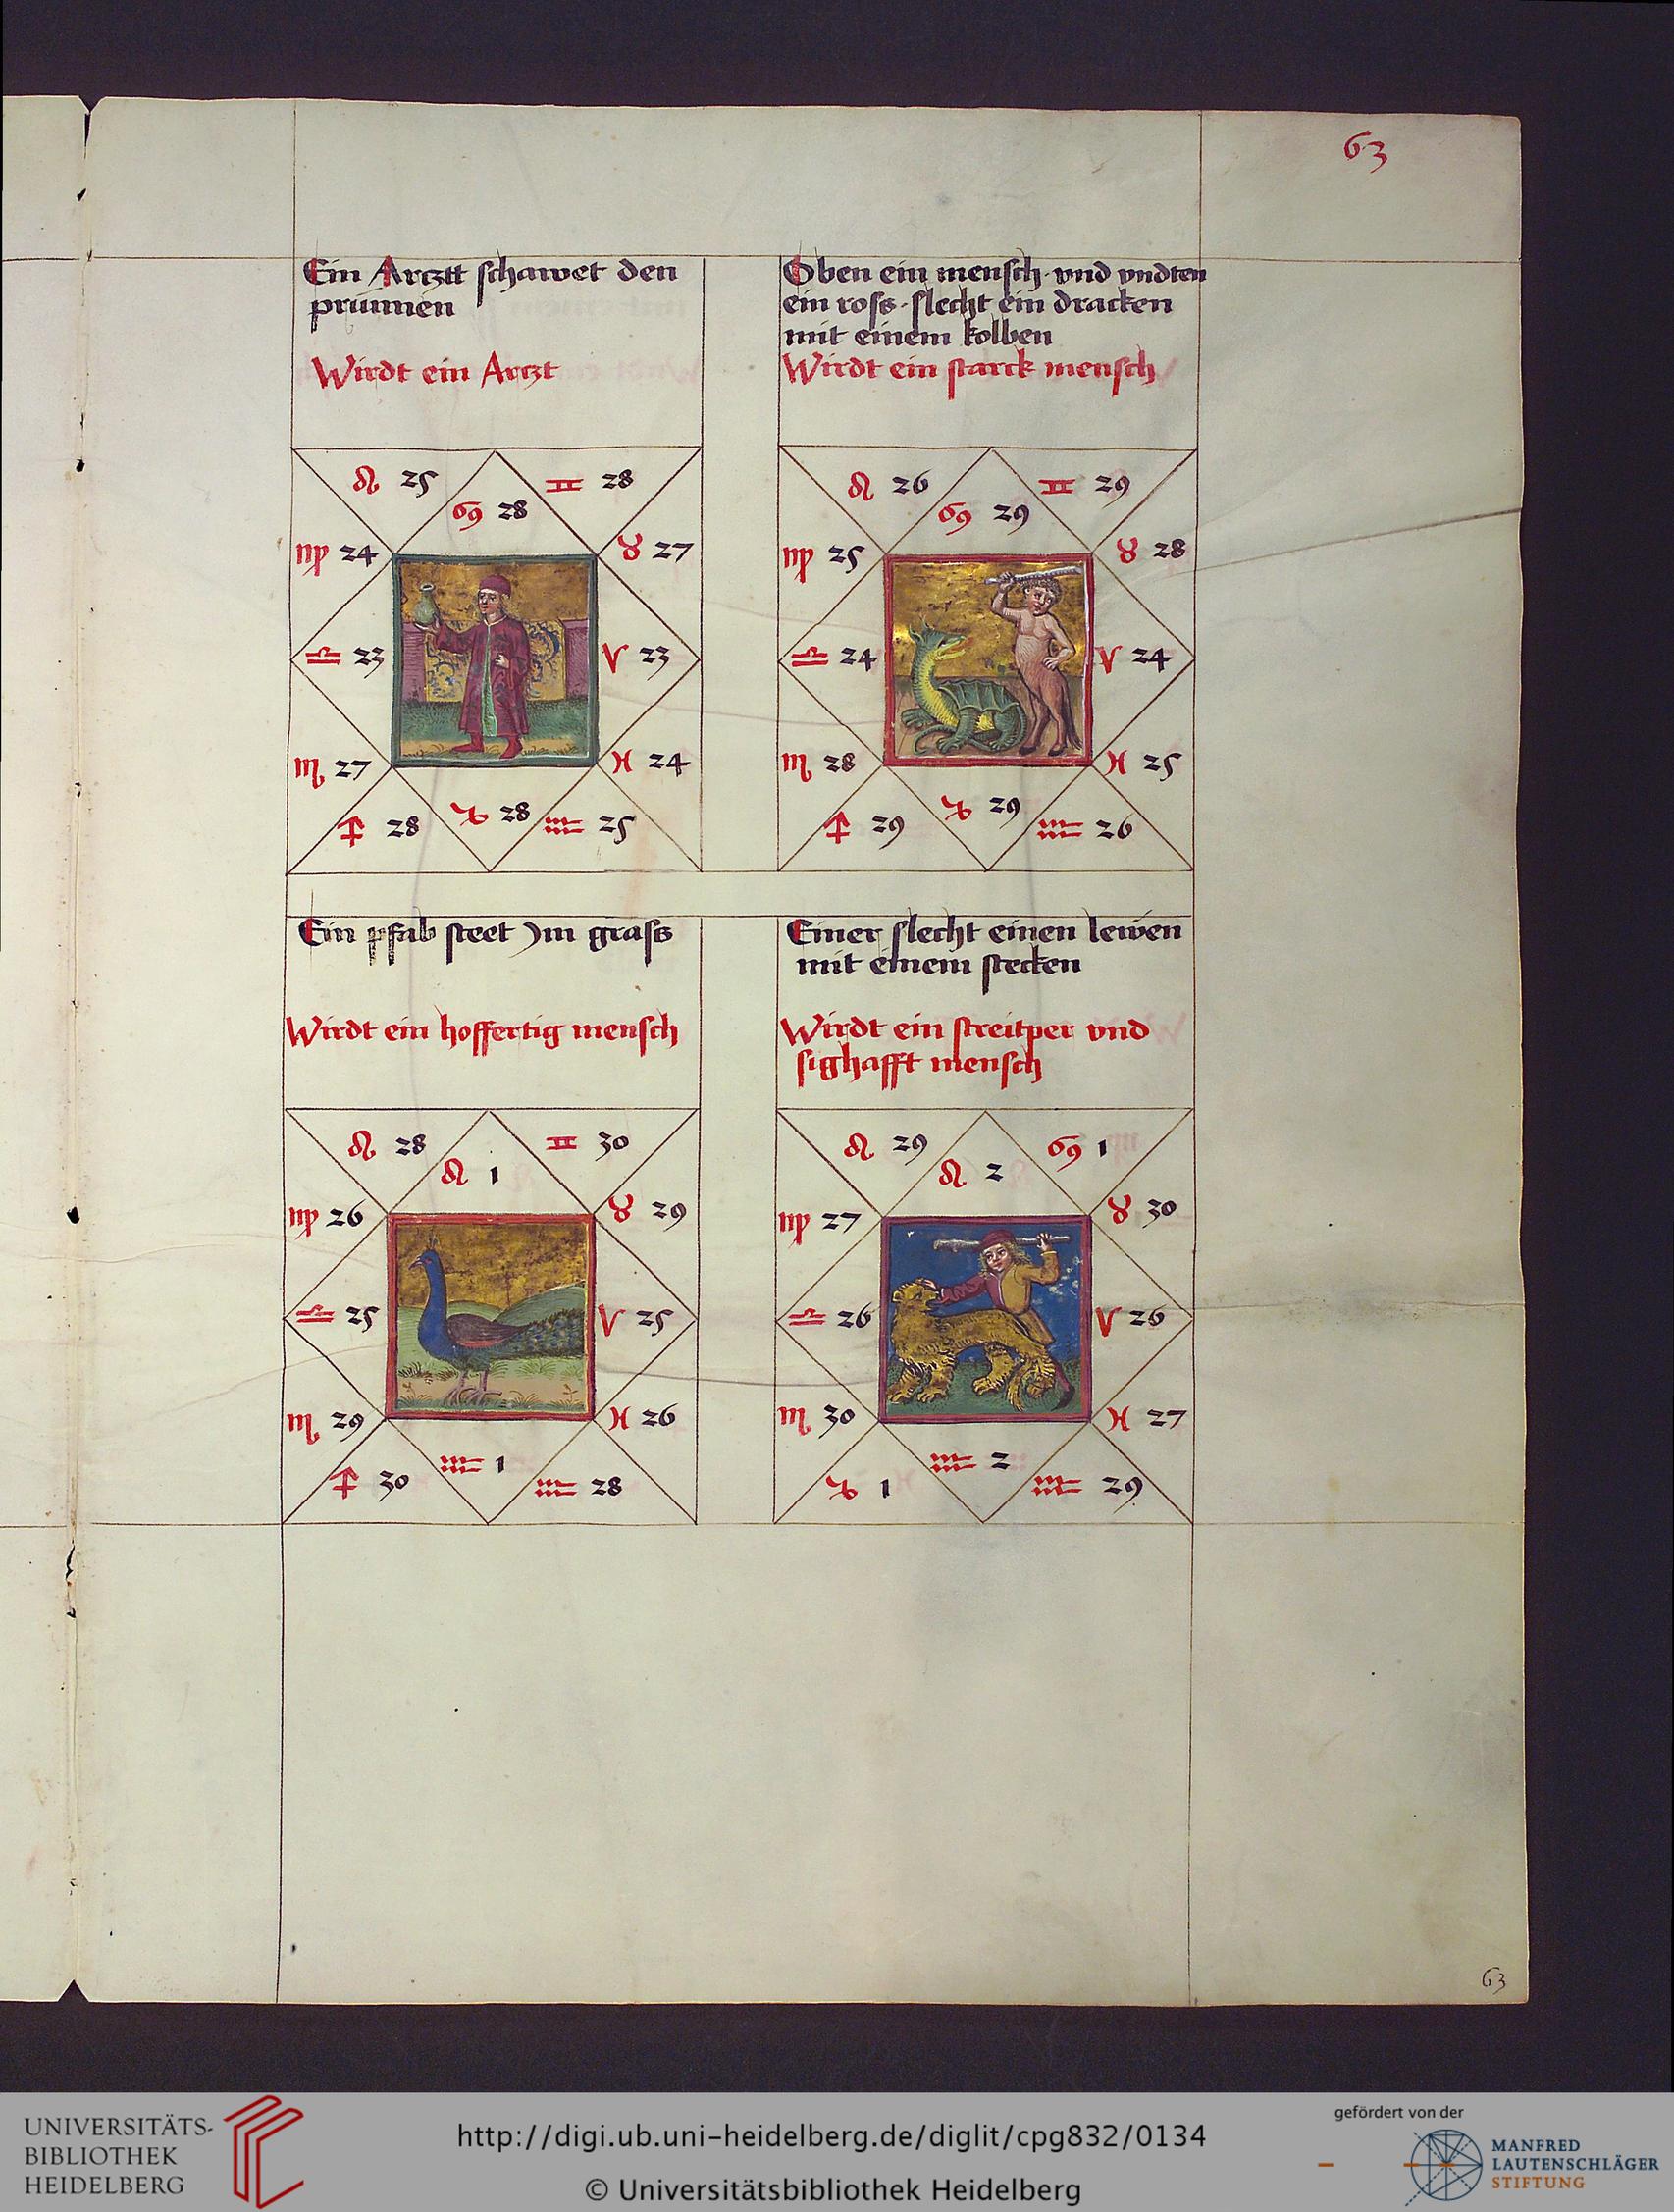 63
Ein Arcztt schawet den
prunnen
Wirdt ein Arczt
♌ 25
♊ 28
♋ 28
♍ 24
♉ 27
♎ 23
♈ 23
♏ 27
♓ 24
♐ 28
♑ 28
♒ 25
Oben ein mensch · vnd vndten
ein ross · slecht ein dracken
mit einem kolben
Wirdt ein starck mensch
♌ 26
♊ 29
♋ 29
♍ 25
♉ 28
♎ 24
♈ 24
♏ 28
♓ 25
♐ 29
♑ 29
♒ 26
Ein pfab steet Jm grass
Wirdt ein hoffertig mensch
♌ 28
♊ 30
♌ 1
♍ 26
♉ 29
♎ 25
♈ 25
♏ 29
♓ 26
♐ 30
♒ 1
♒ 28
Einer slecht einen lewen
mit einem stecken
Wirdt ein streitper vnd
sighafft mensch
♌ 29
♋ 1
♌ 2
♍ 27
♉ 30
♎ 26
♈ 26
♏ 30
♓ 27
♑ 1
♒ 2
♒ 29
63
UNIVERSITÄTS-
BIBLIOTHEK
HEIDELBERG
http://digi.ub.uni-heidelberg.de/diglit/cpg832/0134
© Universitätsbibliothek Heidelberg
gefördert von der
MANFRED
LAUTENSCHLÄGER
STIFTUNG